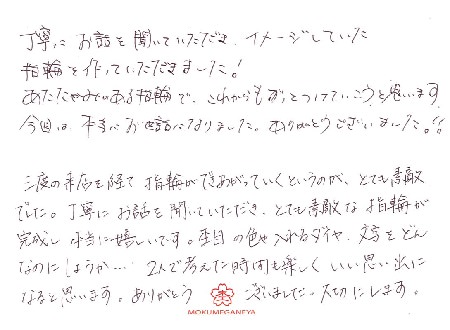 丁寧に お話を聞いていただき、イメージしていた
指輪を作っていただきました！
あたたかみのある指輪で、これからもずっとつけていこうと思います。
今回は、本当にお世話になりました。ありがとうございました!!
三度の来店を経て 指輪ができあがっていくというのが、とても素敵
でした。丁寧に お話を聞いていただき、とても素敵な 指輪が
完成し 本当に嬉しいです。木目の色や 入れるダイヤ、文字をどん
なのにしようか… 2人で考えた時間も楽しく いい思い出に
なると思います。ありがとう ございました。大切にします。
MOKUMEGANEYA